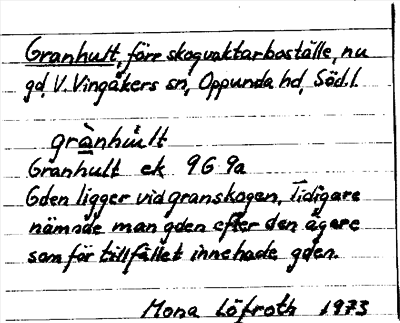 Granhult, förr skogvaktarboställe, nu
gd, V. Vingåkers sn, Oppunda hd, Söd.l.
grànhu̇lt
Granhult ek 9G 9a
Gden ligger vid granskogen, Tidigare
nämnde man gden efter den ägare
som för tillfället innehade gden.
Mona Löfroth 1973